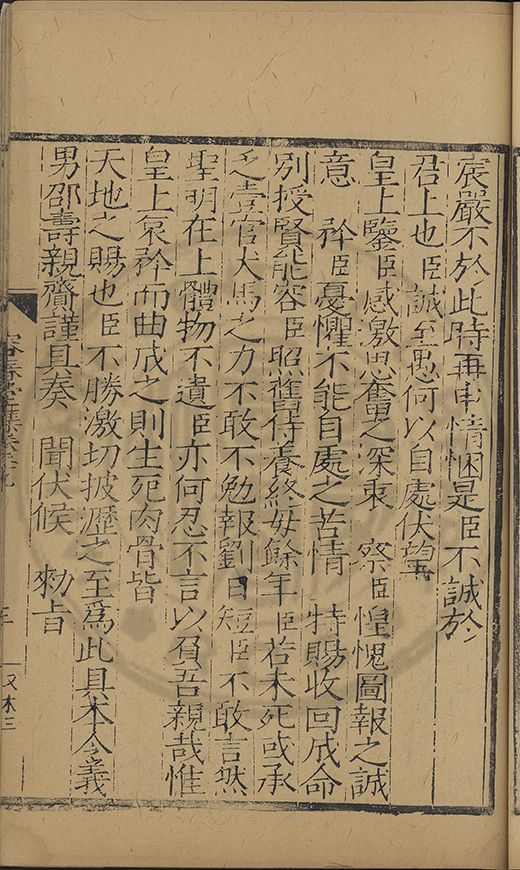 宸嚴不於此時再申情悃是臣不誠於
君上也臣誠至愚何以自處伏望
皇上鑒臣感激思奮之深衷　察臣惶愧圖報之誠
意　矜臣憂懼不能自處之苦情　特賜收回成命
別授賢能容臣照舊侍養終母餘年臣若未死或承
乏壹官犬馬之力不敢不勉報劉日短臣不敢言然
聖明在上體物不遺臣亦何忍不言以負吾親哉惟
皇上哀矜而曲成之則生死肉骨皆
天地之賜也臣不勝激切披瀝之至為此具本令義
男邵壽親齎謹具奏　聞伏候　勑旨
容春堂集卷九
又木三